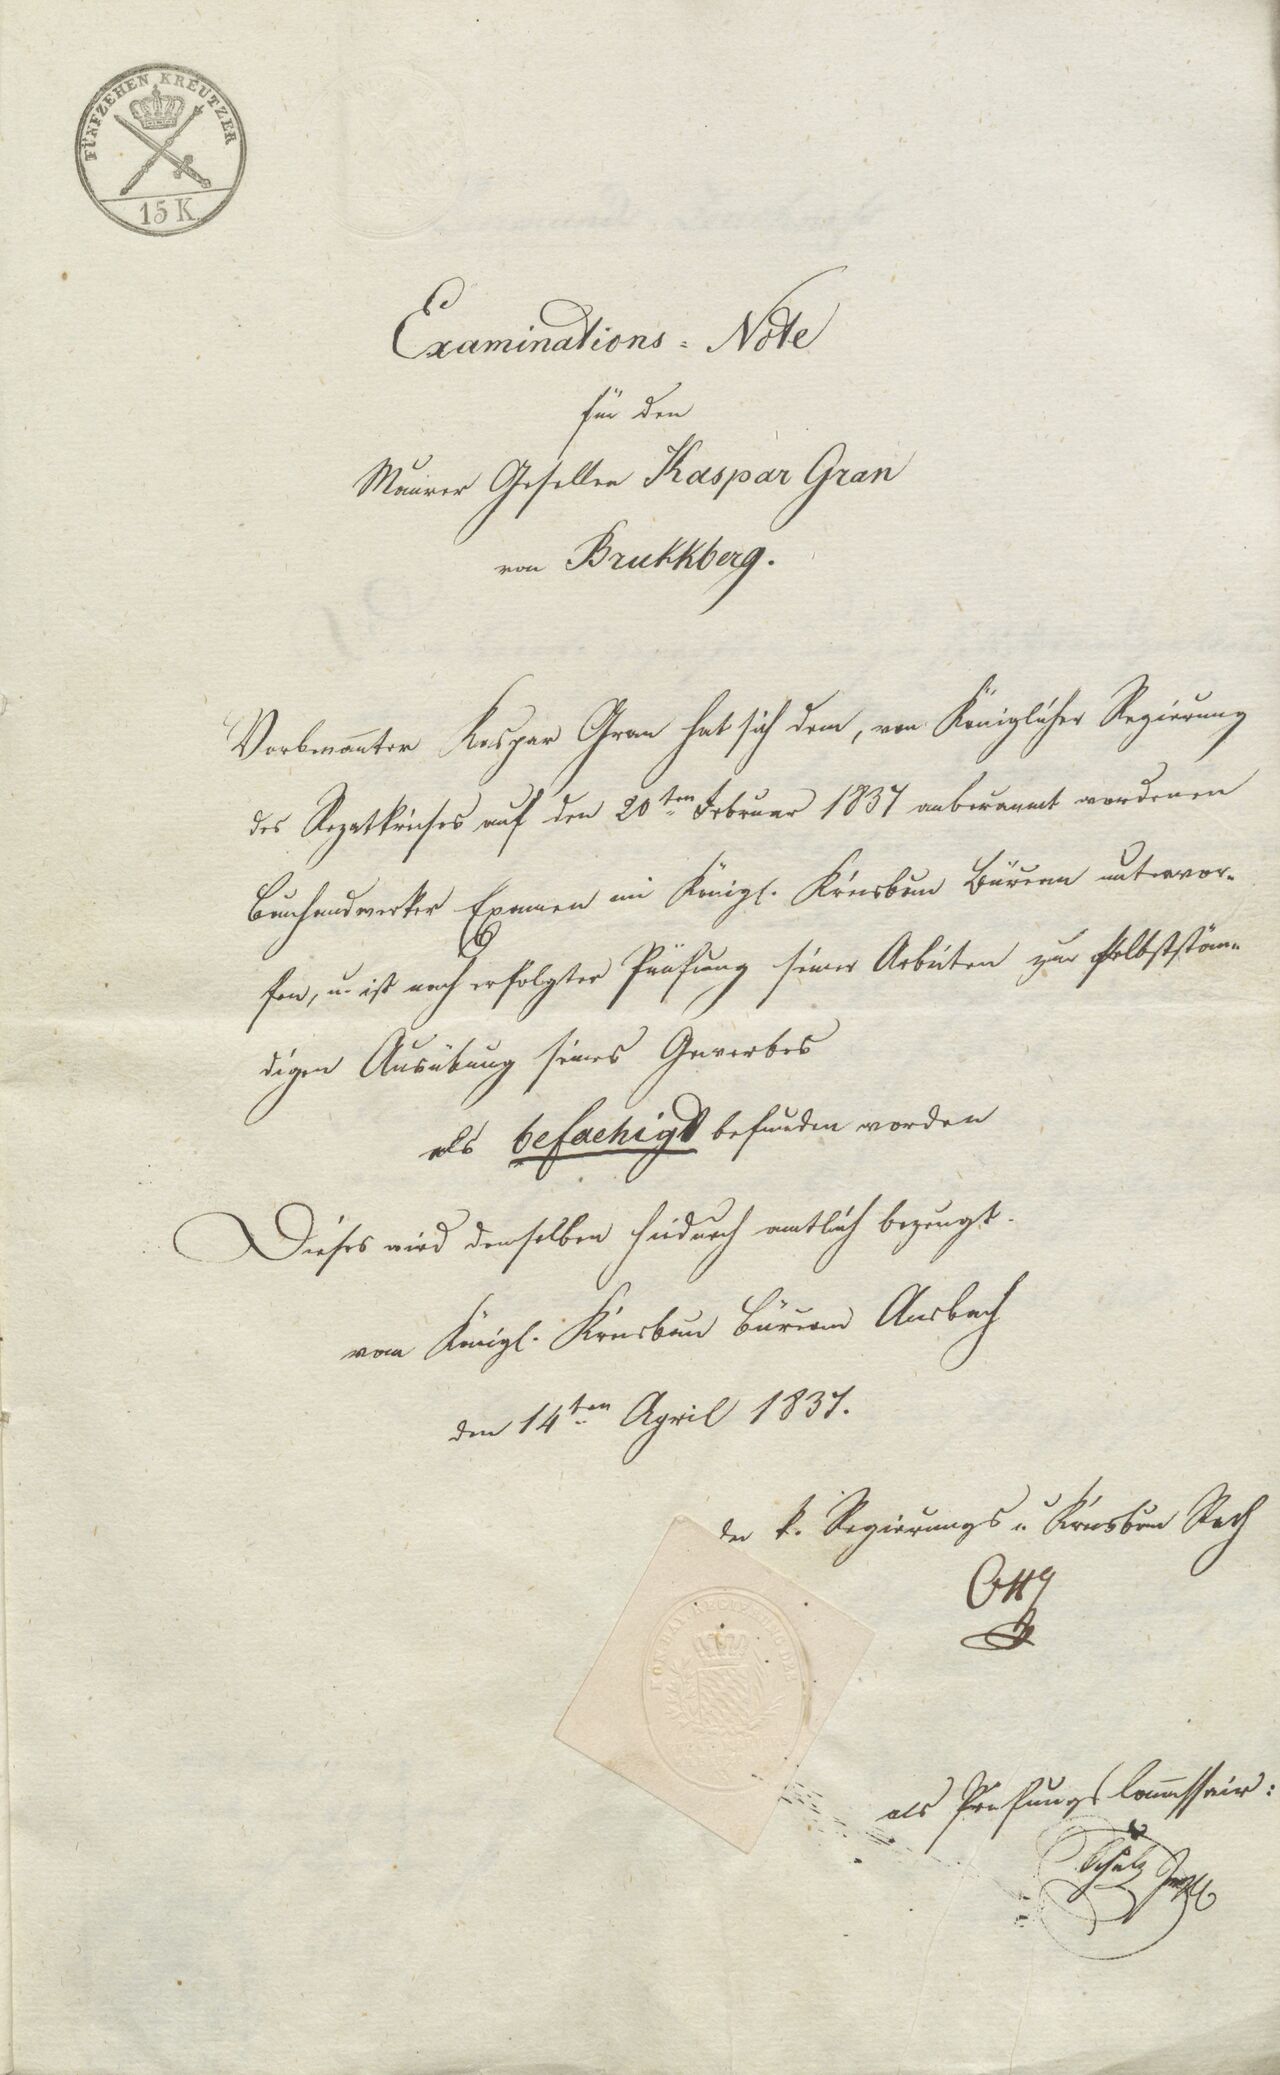 FÜNFZEHEN KREUTZER
15 K
Examinations = Note
für den
Maurer Gesellen Kaspar Gran
von Brukkberg.
Vorbenannter Kaspar Gran hat sich dem, von Königlicher Regierung
des Rezatkreises auf den 20ten Februar 1837 anberaumt wordenen
Bauhandwerker Examen im Königl. Kreisbau Büreau unterwor-
fen, u. ist nach erfolgter Prüfung seiner Arbeiten zur selbststän-
digen Ausübung seines Gewerbes
als befaehigt befunden worden
Dieses wird demselben hiedurch amtlich bezeugt.
vom Königl. Kreisbau Büreau Ansbach
den 14ten April 1837.
der k. Regierungs u. Kreisbau Rath
als Prüfungs Commissair: